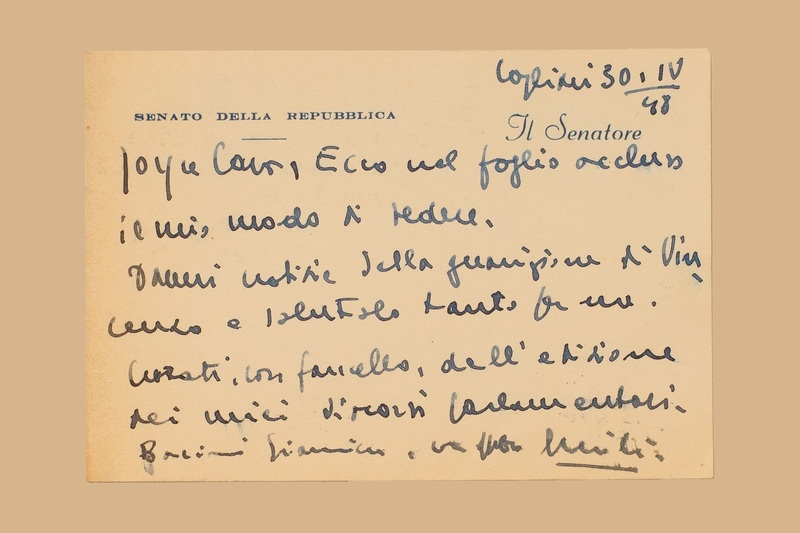 Cagliari 30. IV
48
SENATO DELLA REPUBBLICA
Il Senatore
Joyce Cara, Ecco nel foglio accluso
il mio modo di vedere.
Dammi notizie della guarigione di Vin
cenzo e salutalo tanto per me.
con fancello, dell'edizione
dei miei discorsi parlamentari.
Bacimi Giannina,